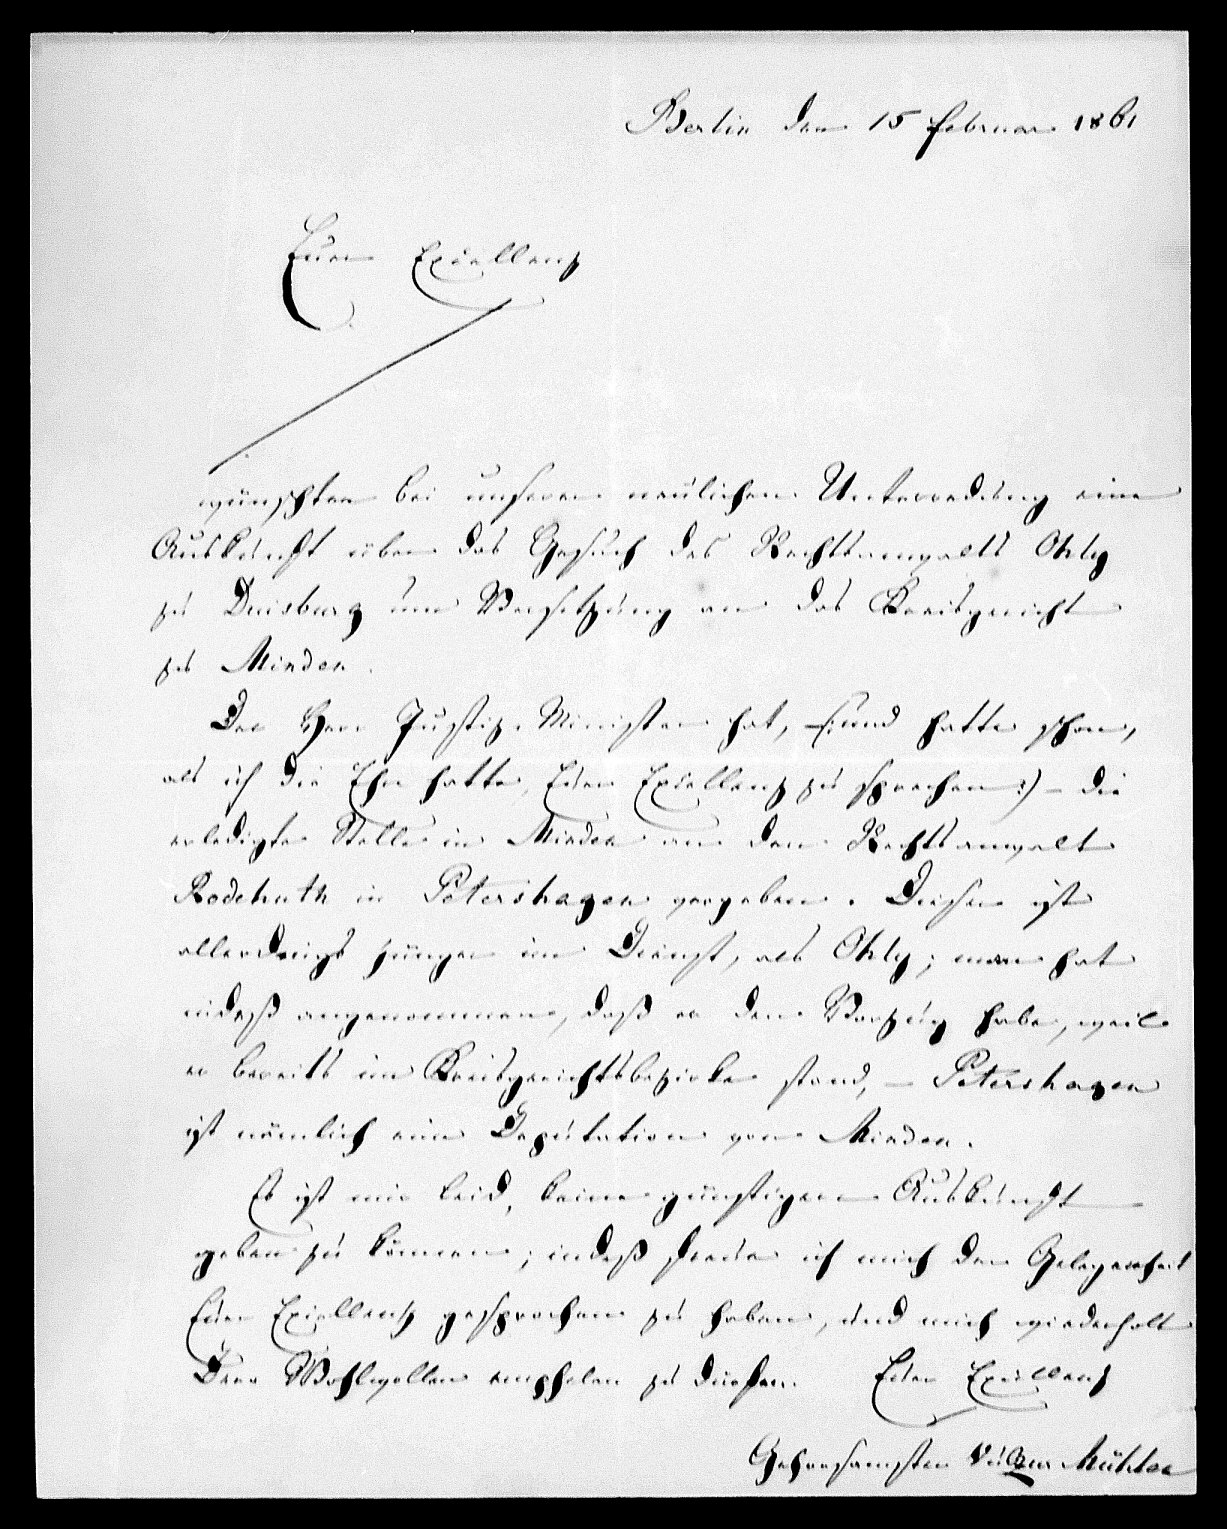 Berlin den 15 Februar 1861
Euer Excellenz
wünschten bei unserer neulichen Unterredung eine
Auskunft über das Gesuch des Rechtsanwalts Ohly
zu Duisburg um Versetzung an das Kreisgericht
zu Minden.
Der Herr Justiz-Minister hat, –(:und hatte schon,
als ich die Ehre hatte, Euer Excellenz zu sprechen:) – die
erledigte Stelle in Minden an den Rechtsanwalt
Rodehuth in Petershagen vergeben. Dieser ist
allerdings jünger im Dienst, als Ohly; man hat
indeß angenommen, daß er den Vorzug habe, weil
er bereits im Kreisgerichtsbezirke stand, – Petershagen
ist nämlich eine Deputation von Minden.
Es ist mir leid, keine günstigere Auskunft
geben zu können; indeß freue ich mich der Gelegenheit
Euer Excellenz gesprochen zu haben, und mich wiederholt
Dero Wohlwollen empfelen zu dürfen. Euer Excellenz
Gehorsamster Mühler